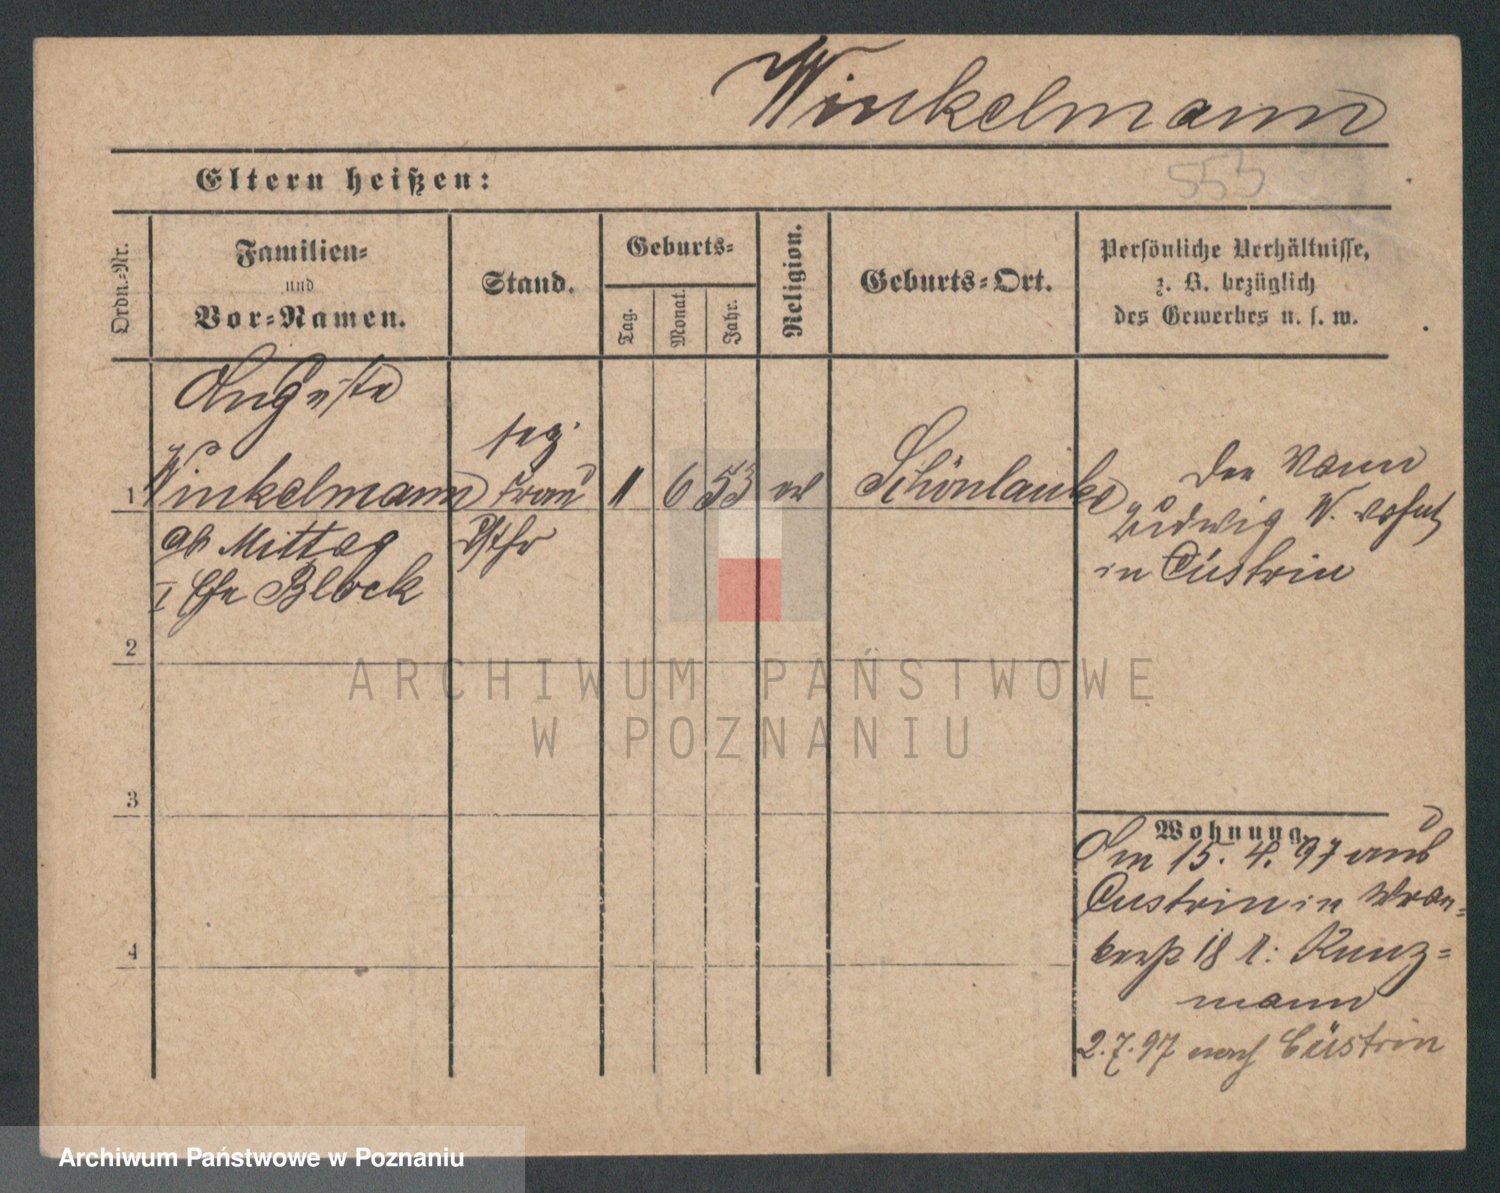 Winkelmann
553
Eltern heißen:
Ordn.-Nr.
Familien-
und
Vor-Namen.
Stand.
Geburts-
Tag.
Monat.
Jahr.
Religion.
Geburts-Ort.
Persönliche Verhältnisse,
z. B. bezüglich
des Gewerbes u. s. w.
Auguste
1 Winkelmann
gb Mittag
I Ehe Block
Frau
11 6 53 ev
Schönlanke
Der Mann
Ludwig W. wohnt
in Cüstrin
2
3
4
Wohnung.
Am 15. 4. 97 aus
Custrin in Wron-
kerstr 18 b: Kunz-
mann
2.7.97 nach Cüstrin
ARCHIWUM PAŃSTWOWE
W POZNANIU
Archiwum Państwowe w Poznaniu